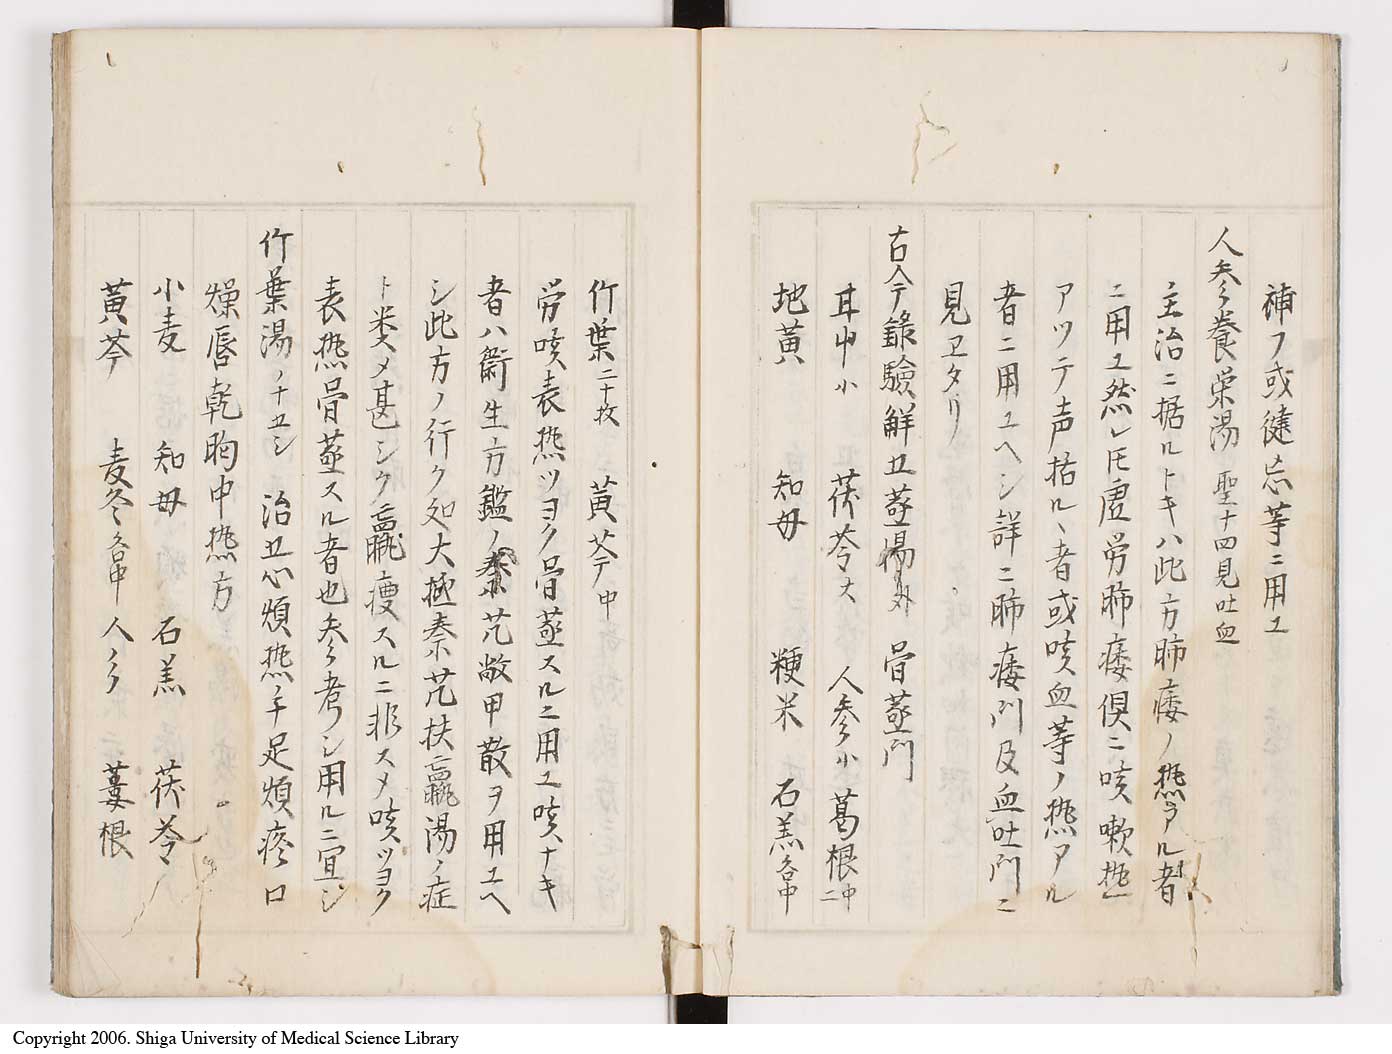 補フ或健忘等ニ用ユ
人参養栄湯 聖十四見吐血
主治ニ据ルトキハ此方肺痿ノ熱アル者
ニ用ユ然レ𪜈虚労肺痿倶ニ咳嗽熱
アツテ声枯ルヽ者或咳血等ノ熱アル
者ニ用ユヘシ詳ニ肺痿門及血吐門ニ
見ヱタリ
古今録験解五蒸湯外 骨蒸門
甘中小 茯苓大 人参小 葛根中二
地黄 知母 粳米 石羔各中
竹葉二十枚 黄芩中
労咳表熱ツヨク骨蒸スルニ用ユ咳ナキ
者ハ衛生方鑑ノ秦艽敝甲散ヲ用ユヘ
シ此方ノ行ク如大極秦艽扶羸湯ノ症
ト类メ甚シク羸痩スルニ非スメ咳ツヨク
表熱骨蒸スル者也参考シ用ルニ宜シ
竹葉湯ノ十五シ 治五心煩熱手足煩疼口
燥唇乾胸中熱方
小麦 知母 石羔 茯苓
黄芩 麦冬各中 人々 蔞根
Copyright 2006. Shiga University of Medical Science Library